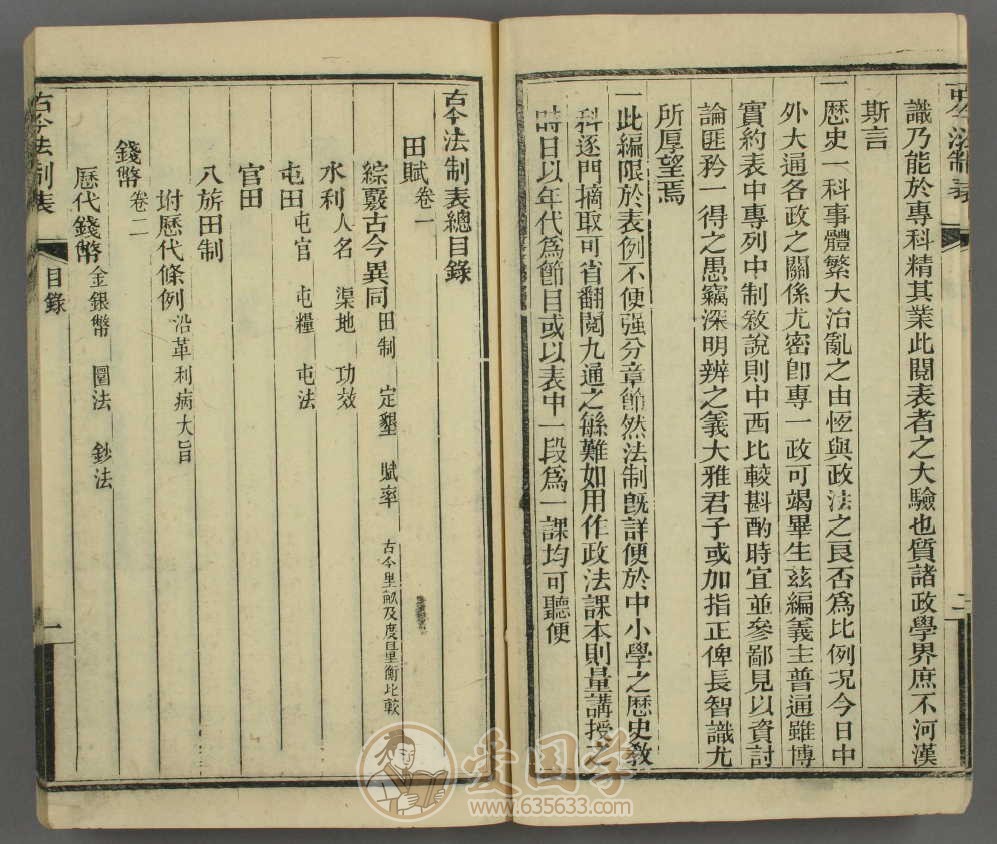 古今法制表
二
識乃能於專科精其業此閱表者之大驗也質諸政學界庶不河漢
斯言
一歷史一科事體繁大治亂之由恆與政法之良否為比例况今日中
外大通各政之關係尤密卽專一政可竭畢生茲編義主普通雖博
實約表中專列中制敘說則中西比較斟酌時宜並參鄙見以資討
論匪矜一得之愚竊深明辨之義大雅君子或加指正俾長智識尤
所厚望焉
一此編限於表例不便强分章節然法制旣詳便於中小學之歷史教
科逐門摘取可省翻閱九通之緐難如用作政法課本則量講授之
時日以年代爲節目或以表中一段爲一課均可聽便
古今法制表總目錄
田賦卷一
綜覈古今異同田制 定墾 賦率 古今里畝及度量衡比較
水利人名 渠地 功效
屯田屯官 屯糧 屯法
官田
八旂田制
坿歷代條例沿革利病大旨
錢幣卷二
歷代錢幣金銀幣 圜法 鈔法
古今法制表
目錄
一
爱国学
www.635633.com